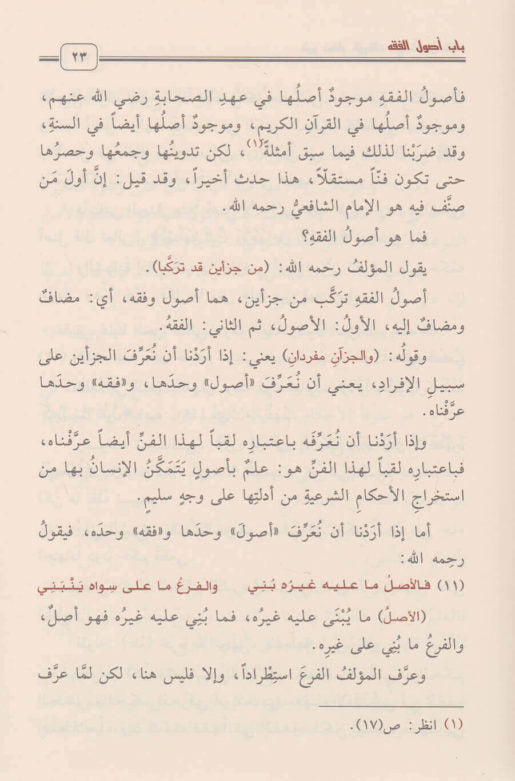 باب أصول الفقه
٢٣
فأصولُ الفقهِ موجودٌ أصلُها في عهدِ الصحابةِ رضي الله عنهم،
وموجودٌ أصلُها في القرآنِ الكريمِ، وموجودٌ أصلُها أيضاً في السنةِ،
وقد ضرَبْنا لذلك فيما سبق أمثلةً(١)، لكن تدوينُها وجمعُها وحصرُها
حتى تكون فنّاً مستقلّاً، هذا حدث أخيراً، وقد قيل: إنَّ أولَ مَن
صنَّف فيه هو الإمام الشافعيُّ رحمه الله.
فما هو أصولُ الفقهِ؟
يقول المؤلفُ رحمه الله: (من جزأين قد ترَكَّبا).
أصولُ الفقهِ ترَكَّب من جزأينِ، هما أصول وفقه، أي: مضافٌ
ومضافٌ إليه، الأولُ: الأصولُ، ثم الثاني: الفقهُ.
وقولُه: (والجزآنِ مفردانِ) يعني: إذا أرَدْنا أن نُعَرِّفَ الجزأينِ على
سبيلِ الإفرادِ، يعني أن نُعَرِّفَ «أصول» وحدَها، و«فقه» وحدَها
عرَّفْناه.
وإذا أرَدْنا أن نُعَرِّفَه باعتبارِه لقباً لهذا الفنِّ أيضاً عرَّفْناه،
فباعتبارِه لقباً لهذا الفنِّ هو: علمٌ بأصولٍ يَتَمَكَّنُ الإنسانُ بها من
استخراجِ الأحكامِ الشرعيةِ من أدلتِها على وجهٍ سليمٍ.
أما إذا أرَدْنا أن نُعَرِّفَ «أصولَ» وحدَها و«فقه» وحدَه، فيقولُ
رحِمه الله:
(١١) فالأصلُ ما عليه غيرُه بُنِي والفرعُ ما على سِواه يَنْبَنِي
(الأصلُ) ما يُبْنَى عليه غيرُه، فما بُنِي عليه غيرُه فهو أصلٌ،
والفرعُ ما بُنِي على غيرِه.
وعرَّف المؤلفُ الفرعَ استِطْراداً، وإلا فليس هنا، لكن لمَّا عرَّف
(١) انظر: ص(١٧).